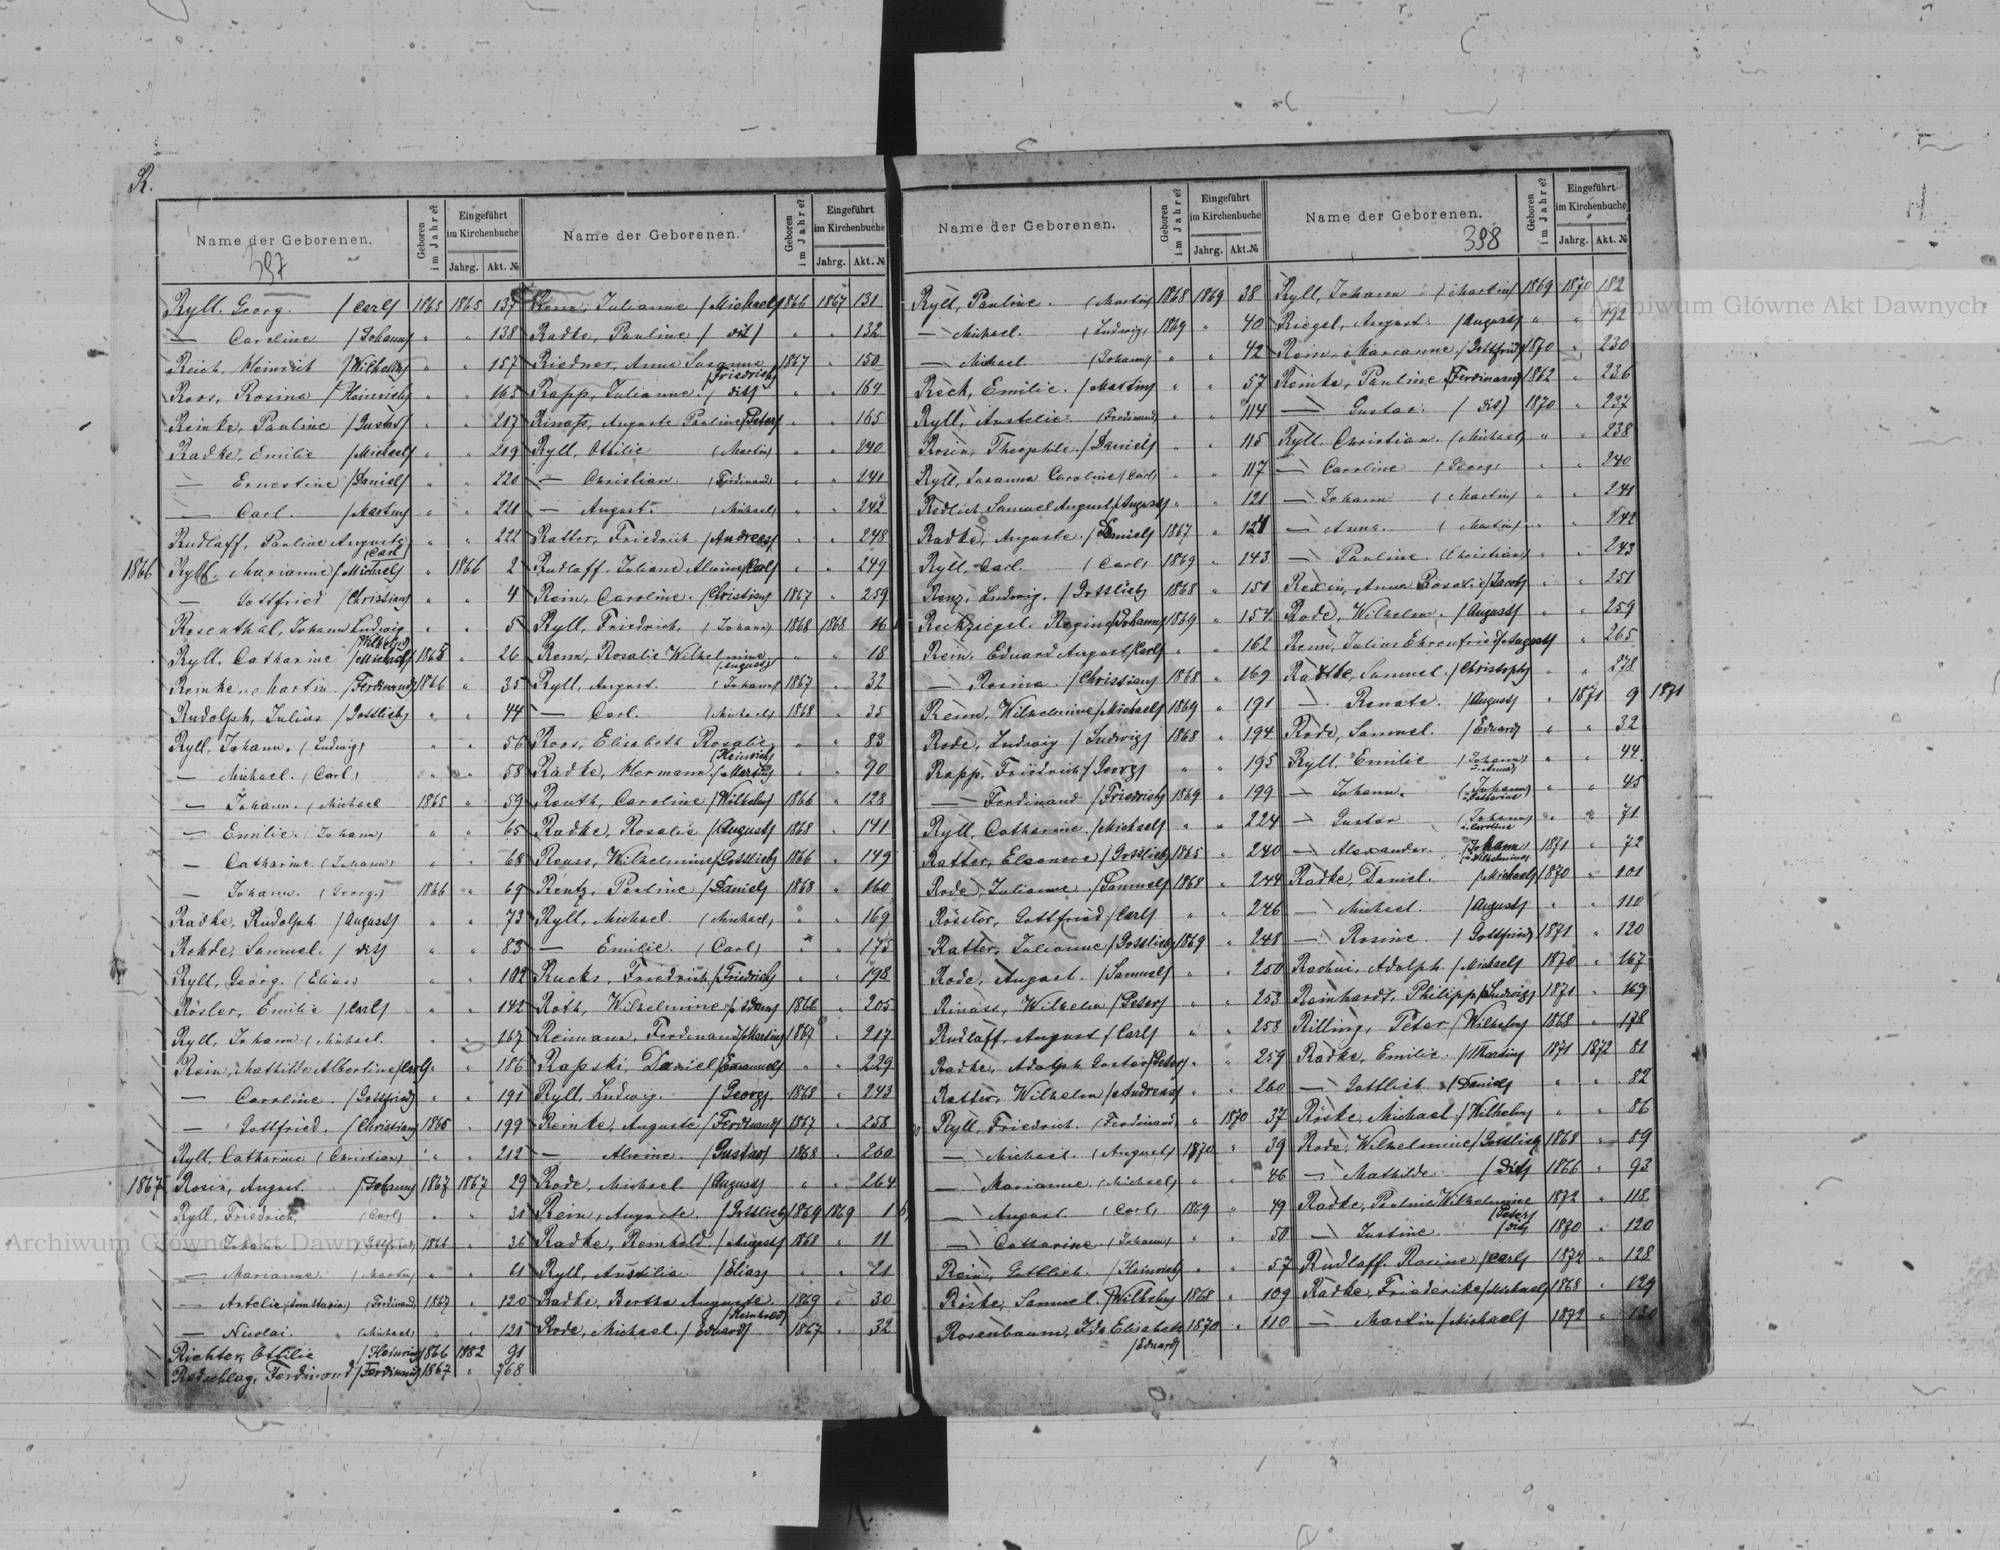 R.
Name der Geborenen.
397
Geboren im Jahre?
Eingeführt im Kirchenbuche
Jahrg.
Akt. №
Ryll, Georg. /Carl/ 1865 1865 137
— Caroline /Johann/ " " 138
Reich, Heinrich /Wilhelm/ " " 157
Roos, Rosine /Heinrich/ " " 165
Reinke, Pauline /Gustav/ " " 217
Radke, Emilie /Michael/ " " 219
— Ernestine /Daniel/ " " 220
— Carl. /Martin/ " " 221
Rudlaff, Pauline Auguste /Carl/ " " 222
1866 Ryll, Marianne /Michael/ " 1866 2
— Gottfried /Christian/ " " 4
Rosenthal, Johann Ludwig /Wilhelm/ " " 5
Ryll, Catharine /Michael/ 1865 " 26
Reinke, Martin /Ferdinand/ 1866 " 35
Rudolph, Julius /Gottlieb/ " " 44
Ryll, Johann. (Ludwig) " " 56
— Michael. (Carl) " " 58
— Johann. (Michael 1865 " 59
— Emilie. (Johann) " " 65
— Catharine (Johann) " " 68
— Johann. (Georg.) 1866 " 69
Radke, Rudolph /August/ " " 73
Rohde, Samuel. / dis/ " " 83
Ryll, Georg. (Elias) " " 102
Rösler, Emilie /Carl/ " " 142
Ryll, Johann (Michael. " " 167
Rein, Mathilde Albertine /Carl/ " " 186
— Caroline. /Gottfried/ " " 191
— Gottfried. /Christian/ 1865 " 199
Ryll, Catharine (Christian) " " 212
1867 Rosin, August /Johann/ 1867 1867 29
Ryll, Friedrich, (Carl) " " 31
— Johann (Gottfried) 1866 " 36
— Marianne. (Martin) " " 61
— Astelie (Anastasia) (Ferdinand) 1867 " 120
— Nicolai. (Michael) " " 121
Richter, Ottilie /Heinrich/ 1866 1882 91
Radschlag, Ferdinand /Ferdinand/ 1867 " 368
Name der Geborenen.
Geboren im Jahre?
Eingeführt im Kirchenbuche
Jahrg.
Akt. №
Renn, Julianne /Michael/ 1866 1867 131
Radke, Pauline / dis/ " " 132
Riedner, Anna Susanna /Friedrich/ 1867 " 150
Rapp, Julianne. / dis/ " " 164
Rinaß, Auguste Pauline /Peter/ " " 165
Ryll, Ottilie (Martin) " " 240
— Christian. (Ferdinand) " " 241
— August. (Michael) " " 242
Ratter, Friedrich /Andreas/ " " 248
Rudlaff, Juliane Alwine /Carl/ " " 249
Rein, Caroline. /Christian/ 1867 " 259
Ryll, Friedrich. (Johann) 1868 1868 16
Renn, Rosalie Wilhelmine /August/ " " 18
Ryll, August. (Johann) 1867 " 32
— Carl. (Michael) 1868 " 35
Roos, Elisabeth Rosalie /Heinrich/ " " 83
Radke, Hermann. /Martin/ " " 90
Rauth, Caroline /Wilhelm/ 1866 " 128
Radke, Rosalie /August/ 1868 " 141
Reuss, Wilhelmine /Gottlieb/ 1866 " 149
Rentz, Pauline /Daniel/ 1868 " 160
Ryll, Michael. (Michael) " " 169
— Emilie. (Carl) " " 175
Rucks, Friedrich /Friedrich/ " " 198
Roth, Wilhelmine /Adam/ 1866 " 205
Reimann, Ferdinand /Martin/ 1867 " 217
Rapski, Daniel /Emanuel/ " " 229
Ryll, Ludwig. /Georg/ 1868 " 243
Reinke, Auguste /Ferdinand/ 1867 " 258
— Alwine. /Gustav/ 1868 " 260
Rode, Michael /August/ " " 264
Rein, Auguste. /Gottlieb/ 1869 1869 1
Radke, Reinhold. /August/ 1868 " 11
Ryll, Austilia. /Elias/ " " 21
Radke, Bertha Auguste. /Reinhold/ 1869 " 30
Rode, Michael. /Eduard/ 1867 " 32
Name der Geborenen.
Geboren im Jahre?
Eingeführt im Kirchenbuche
Jahrg.
Akt. №
Ryll, Pauline. (Martin) 1868 1869 38
— Michael. (Ludwig) 1869 " 40
— Michael. (Johann) " " 42
Reck, Emilie. /Martin/ " " 57
Ryll, Austelie. (Ferdinand) " " 114
Rosin, Theophile. /Daniel/ " " 115
Ryll, Susanna Caroline (Carl) " " 117
Redlich, Samuel August /August/ " " 121
Radke, Auguste. /Daniel/ 1867 " 121
Ryll, Carl. (Carl) 1869 " 143
Renz, Ludwig. /Gottlieb/ 1868 " 151
Rechziegel, Regine /Johann/ 1869 " 154
Rein, Eduard August /Carl/ " " 162
— Rosine. /Christian/ 1868 " 169
Renn, Wilhelmine /Michael/ 1869 " 191
Rode, Ludwig /Ludwig/ 1868 " 194
Rapp, Friedrich /Georg/ " " 195
— Ferdinand /Friedrich/ 1869 " 199
Ryll, Catharine. /Michael/ " " 224
Ratter, Eleonore /Gottlieb/ 1865 " 240
Rode, Julianne /Samuel/ 1868 " 244
Rössler, Gottfried /Carl/ " " 246
Ratter, Julianne /Gottlieb/ 1869 " 248
Rode, August. /Samuel/ " " 250
Rinass, Wilhelm /Peter/ " " 253
Rudlaff, August /Carl/ " " 258
Radke, Adolph Gustav /Peter/ " " 259
Ratter, Wilhelm /Andreas/ " " 260
Ryll, Friedrich. (Ferdinand) " 1870 37
— Michael. (August) 1870 " 39
— Marianne. (Michael) " " 46
— August. (Carl) 1869 " 49
— Catharine. (Johann) " " 50
Rein, Gottlieb. /Heinrich/ " " 57
Röske, Samuel. /Wilhelm/ 1868 " 109
Rosenbaum, Ida Elisabeth /Eduard/ 1870 " 110
Name der Geborenen.
398
Geboren im Jahre?
Eingeführt im Kirchenbuche
Jahrg.
Akt. №
Ryll, Johann (Martin) 1869 1870 182
Riegel, August. /August/ " " 192
Rein, Marianne /Gottfried/ 1870 " 230
Reinke, Pauline /Ferdinand/ 1862 " 236
— Gustav. / dis/ 1870 " 237
Ryll, Christian. (Michael) " " 238
— Caroline (Georg) " " 240
— Johann (Martin) " " 241
— Anna. (Martin) " " 242
— Pauline. (Christian) " " 243
Redin, Anna Rosalie /Jacob/ " " 251
Rode, Wilhelm. /August/ " " 259
Renn, Julius Ehrenfried /August/ " " 265
Radtke, Samuel. /Christoph/ " " 278
— Renate. /August/ " 1871 9 1871
Rode, Samuel. /Eduard/ " " 32
Ryll, Emilie (Johann u. Anna) " " 44
— Johann. (Johann u. Catharina) " " 45
— Gustav (Johann u. Caroline " " 71
— Alexander. (Johann u. Wilhelmine) 1871 " 72
Radke, Daniel. /Michael/ 1870 " 101
— Michael. /August/ " " 110
— Rosine. /Gottfried/ 1871 " 120
Radhui, Adolph. /Michael/ 1870 " 167
Reinhardt, Philipp /Ludwig/ 1871 " 169
Rilling, Peter /Wilhelm/ 1868 " 178
Radke, Emilie. /Martin/ 1871 1872 81
— Gottlieb. /Daniel/ " " 82
Röske, Michael. /Wilhelm/ " " 86
Rode, Wilhelmine /Gottlieb/ 1868 " 89
— Mathilde. /dis/ 1866 " 93
Radke, Pauline Wilhelmine /Peter/ 1872 " 118
— Justine. /dis/ 1870 " 120
Rudlaff, Rosine /Carl/ 1872 " 128
Radke, Friederike /Michael/ 1868 " 129
— Martin /Michael/ 1872 " 130
Archiwum Główne Akt Dawnych
Archiwum Główne Akt Dawnych